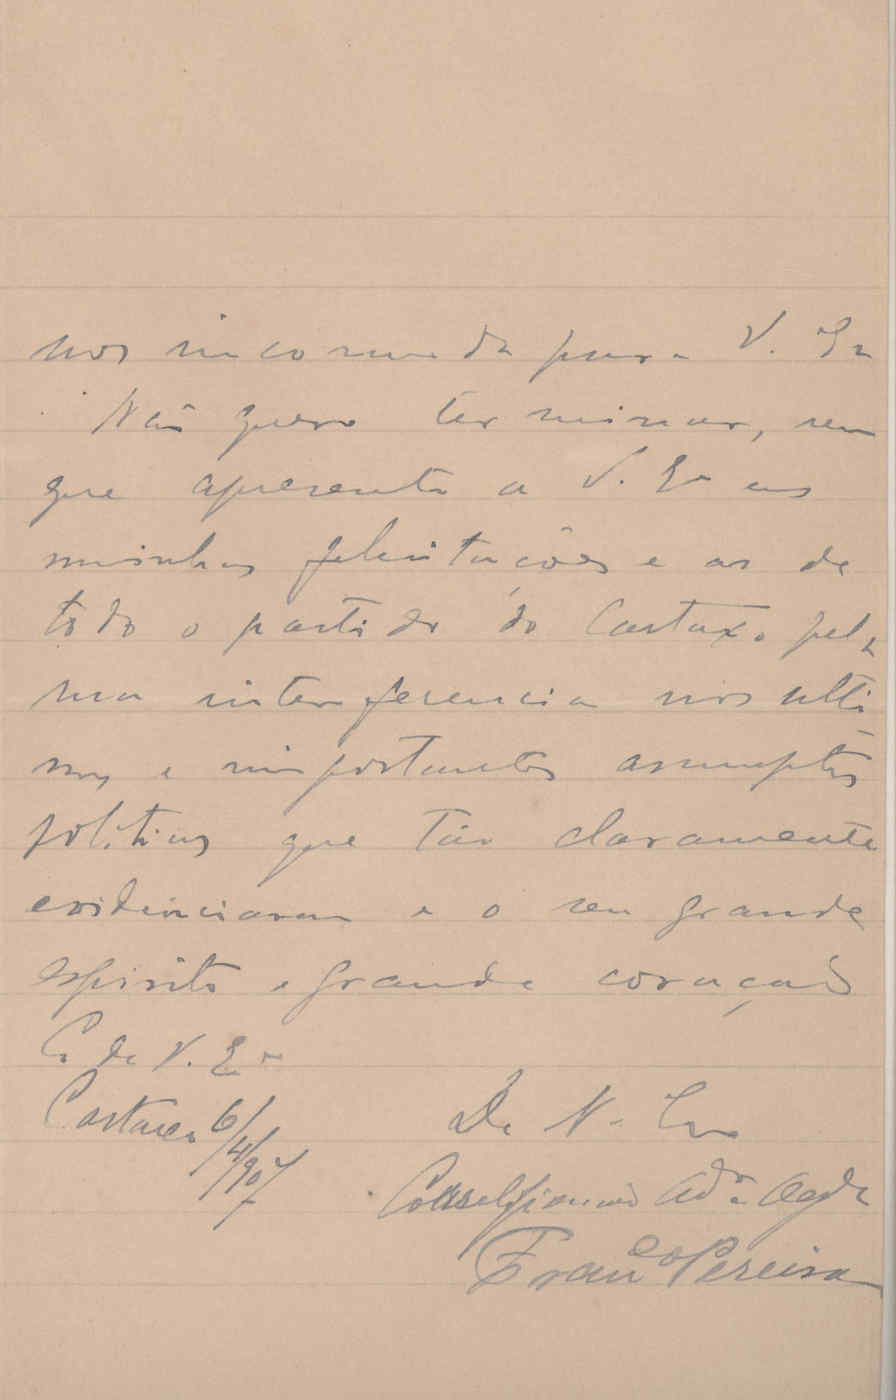 nos incommoda para V. Ex
Não quero terminar, sem
que apresente a V. Exª as
minhas felicitações e as de
todo o partido do Cartaxo pela
sua interferencia nos ulti
mos e importantes assumptos
politicos que tão claramente
evidenciaram e o seu grande
espirito e grande coração
C. de V. Exª
Cartaxo 6/4/907
De V. Ex
Consel
Franco Pereira